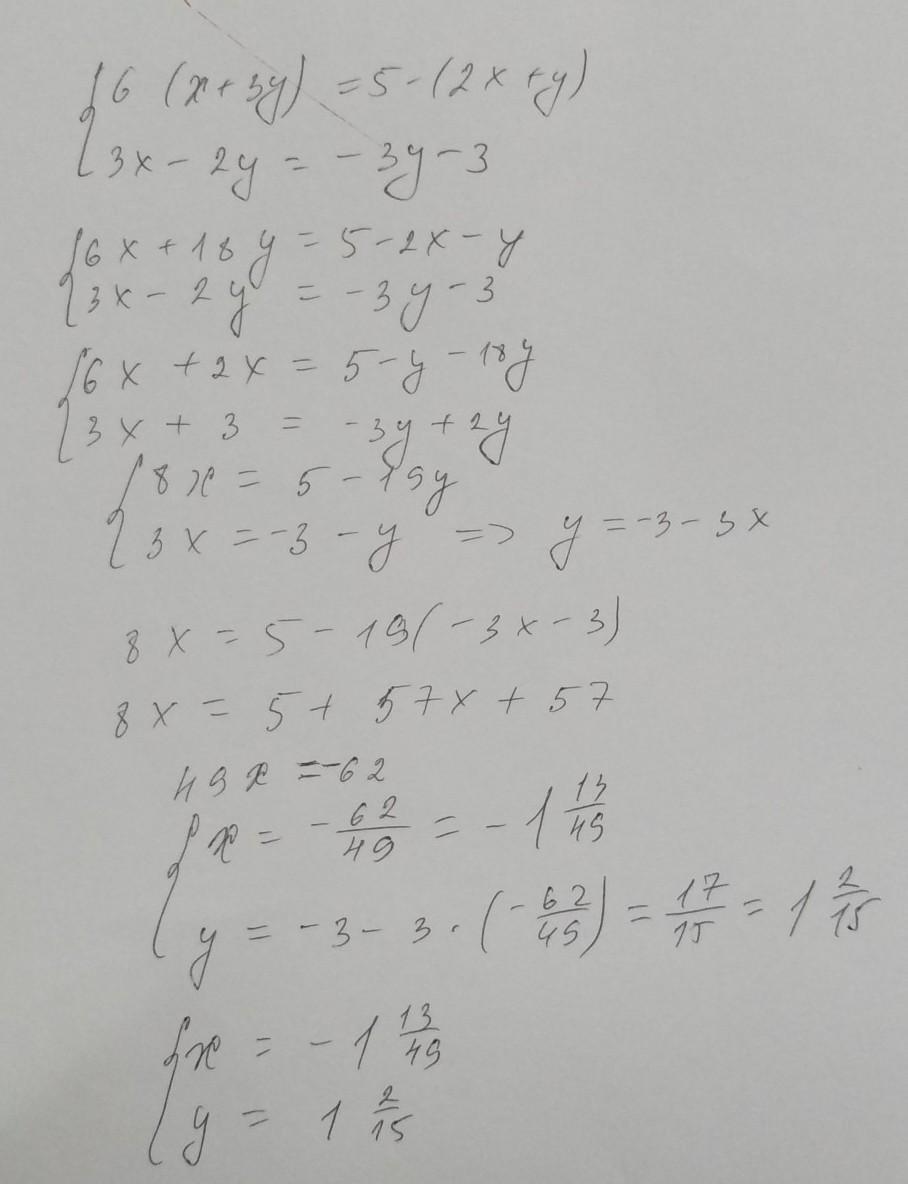 {6 (x+3y) = 5-(2x+y)
{3x - 2y = -3y-3
{6x+18y = 5-2x-y
{3x- 2y = -3y-3
{6x +2x = 5-y-18y
{3x + 3 = -3y+2y
{8x = 5-19y
{3x = -3-y => y = -3-3x
8x = 5-19(-3x-3)
8x = 5+ 57x + 57
49x = -62
{x = -62/49 = -1 13/49
{y = -3-3·(-62/45) = 17/15 = 1 2/15
{x = -1 13/49
{y = 1 2/15